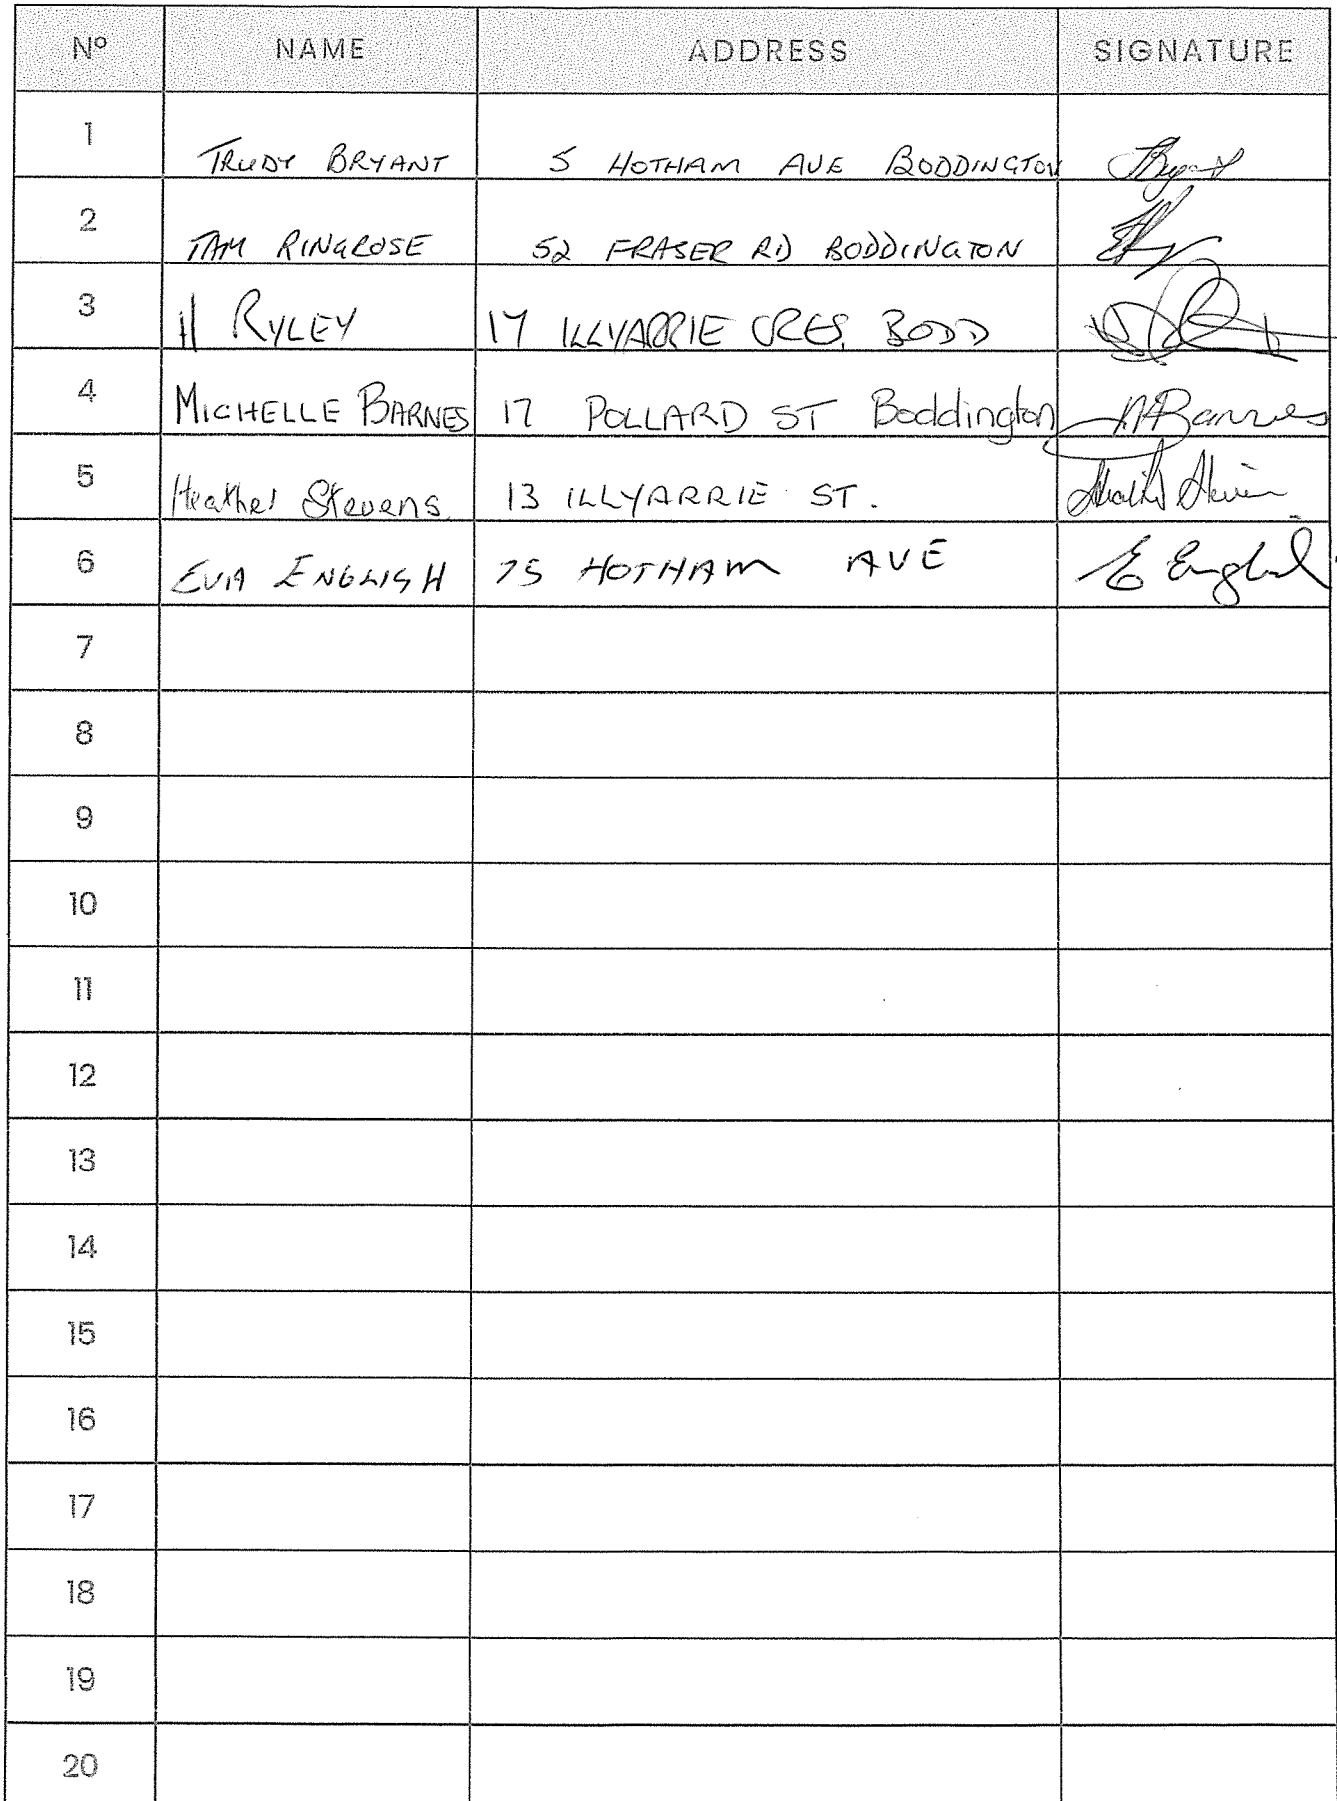 Nº NAME ADDRESS SIGNATURE
1 TRUDY BRYANT 5 HOTHAM AVE BODDINGTON
2 TAM RINGROSE 52 FRASER RD BODDINGTON
3 H RYLEY 17 ILLYARRIE CRES, BODD
4 MICHELLE BARNES 17 POLLARD ST Boddington MBarnes
5 Heather Stevens 13 ILLYARRIE ST.
6 EVA ENGLISH 75 HOTHAM AVE E English
7
8
9
10
11
12
13
14
15
16
17
18
19
20